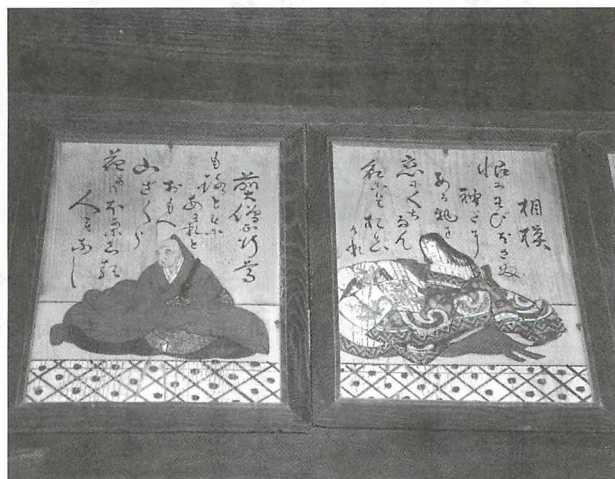 相模
恨みわびほさぬ
袖たに
ある物を
恋にくちなん
名こそおし
けれ
大僧正行尊
もろともに
あはれと
おもへ
山さくら
花よりほかにしる
人もなし